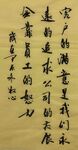 客户的满意是我们永
远的追求公司的发展
全靠员工的努力